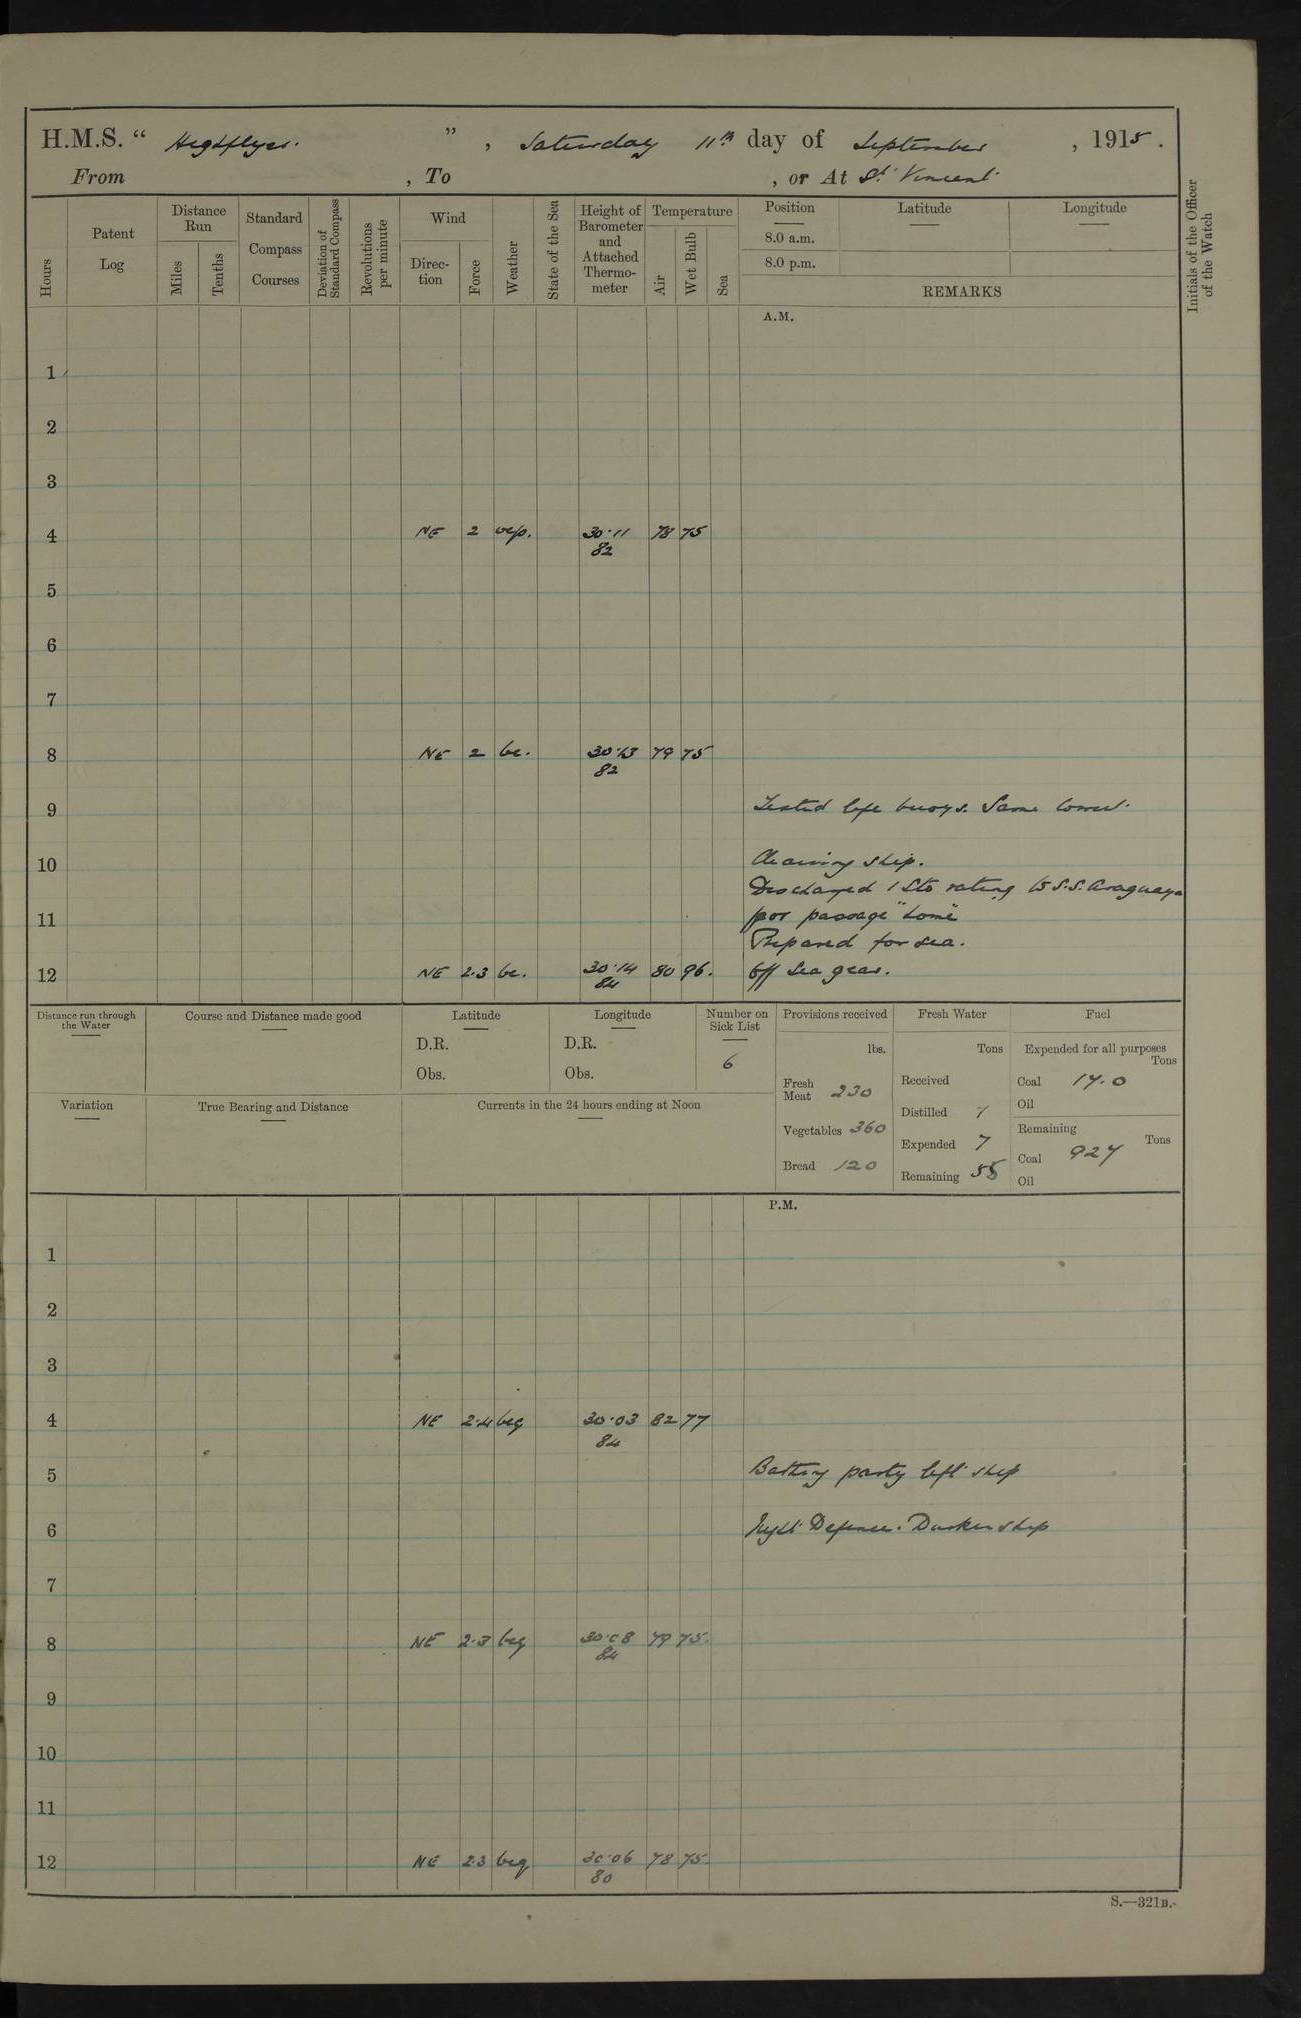 H.M.S. “ Highflyer. ” , Saturday 11th day of September , 1915 .
From , To , or At St Vincent
Hours
Patent Log
Distance Run
Miles
Tenths
Standard Compass Courses
Deviation of Standard Compass
Revolutions per minute
Wind
Direc-tion
Force
Weather
State of the Sea
Height of Barometer and Attached Thermo-meter
Temperature
Air
Wet Bulb
Sea
Position
8.0 a.m.
8.0 p.m.
Latitude
Longitude
REMARKS
Initials of the Officer of the Watch
A.M.
1
2
3
4 NE 2 30·11 78 75
82
5
6
7
8 NE 2 bc. 30·13 79 75
82
9 Tested life buoys. Same correct.
10 Cleaning ship.
Discharged 1 Sto rating to S.S. Araguaya
11 for passage "home"
Prepared for sea.
12 NE 2·3 bc. 30·14 80 96. Off Sea gear.
84
Distance run through the Water
Course and Distance made good
Latitude
D.R.
Obs.
Longitude
D.R.
Obs.
Number on Sick List
6
Provisions received
lbs.
Fresh Meat 230
Vegetables 360
Bread 120
Fresh Water
Tons
Received
Distilled 7
Expended 7
Remaining 55
Fuel
Expended for all purposes
Tons
Coal 17.0
Oil
Remaining
Tons
Coal 927
Oil
Variation
True Bearing and Distance
Currents in the 24 hours ending at Noon
P.M.
1
2
3
4 NE 2·4 bcq 30·03 82 77
84
5 Battery party left ship
6 Night Defence. Darken ship
7
8 NE 2·3 bcq 30·08 79 75.
84
9
10
11
12 NE 2·3 bcq 30·06 78 75.
80
S.—321B.